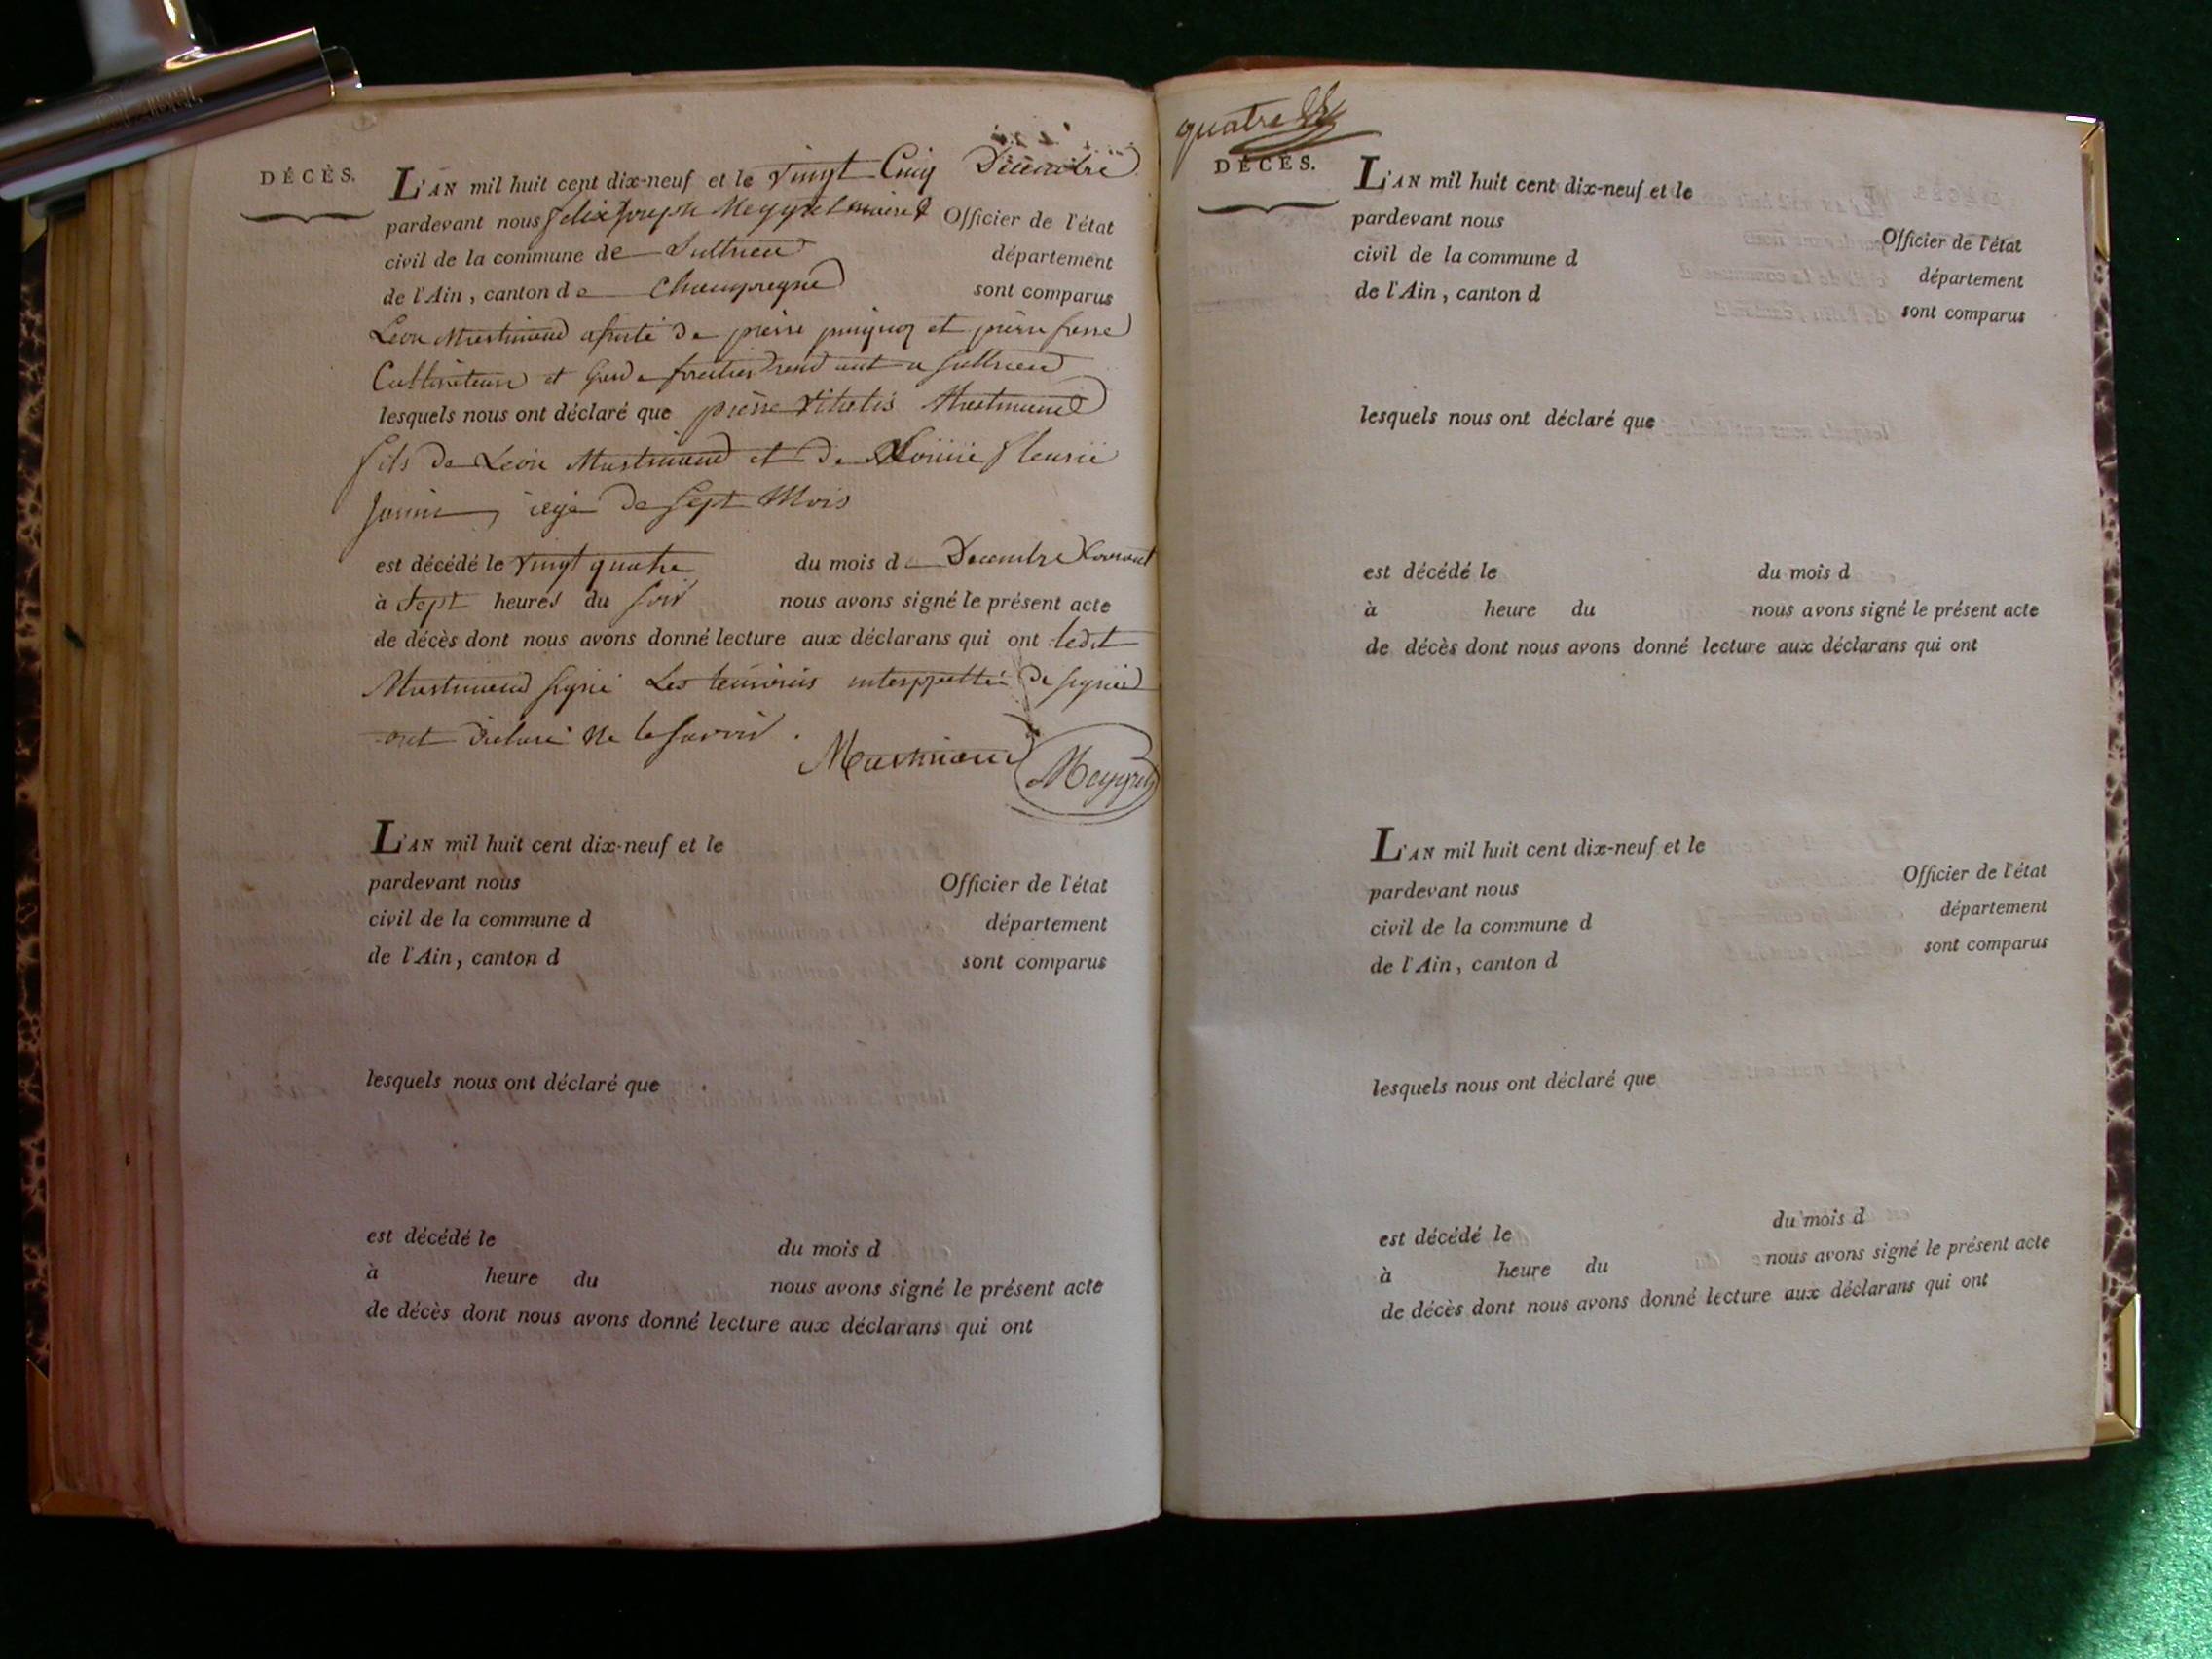 DÉCÈS.
L'AN mil huit cent dix-neuf et le vingt Cinq Décembre
pardevant nous felix Joseph Meygret maire & Officier de l'état
civil de la commune de Sutrieu département
de l'Ain, canton de Champagne sont comparus
Leon Martinand assisté de pierre et pierre
Cultivateurs et garde forestier a Sutrieu
lesquels nous ont déclaré que pierre Martinand
fils de Leon Martinand et de fleurie
âgé de Sept Mois
est décédé le vingt quatre du mois de Decembre Courant
à Sept heures du soir nous avons signé le présent acte
de décès dont nous avons donné lecture aux déclarans qui ont ledit
Martinand signé Les temoins de signer
ont declaré ne le savoir.
Martinand Meygret
L'AN mil huit cent dix-neuf et le
pardevant nous Officier de l'état
civil de la commune d département
de l'Ain, canton d sont comparus
lesquels nous ont déclaré que
est décédé le du mois d
à heure du nous avons signé le présent acte
de décès dont nous avons donné lecture aux déclarans qui ont
quatre
DÉCÈS.
L'AN mil huit cent dix-neuf et le
pardevant nous Officier de l'état
civil de la commune d département
de l'Ain, canton d sont comparus
lesquels nous ont déclaré que
est décédé le du mois d
à heure du nous avons signé le présent acte
de décès dont nous avons donné lecture aux déclarans qui ont
L'AN mil huit cent dix-neuf et le
pardevant nous Officier de l'état
civil de la commune d département
de l'Ain, canton d sont comparus
lesquels nous ont déclaré que
est décédé le du mois d
à heure du nous avons signé le présent acte
de décès dont nous avons donné lecture aux déclarans qui ont